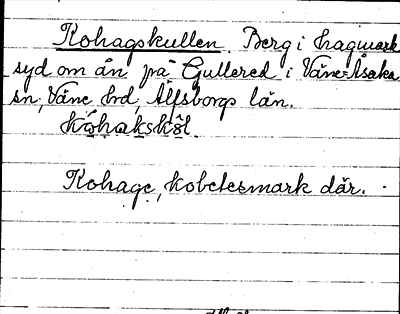 Kohagskullen. Berg i hagmark
syd om ån på Gullered i Väne-Åsaka
sn, Väne hrd, Älfsborgs län.
kóhakskòl
Kohage, kobetesmark där.